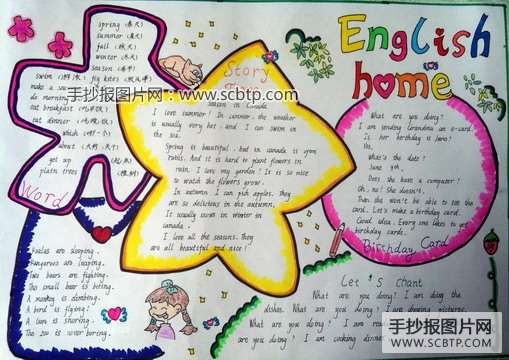 English
home
spring (春天)
summer (夏天)
fall (秋天)
winter (冬天)
season (季节)
swim (游泳) fly kites (放风筝)
make a
do morning
eat breakfast
eat dinner (吃晚饭)
which (哪一个)
about
get up
plant trees
Word
Story
Season in Canada
I love summer! In summer, the weather
is usually very hot and I can swim in
the sea.
Spring is beautiful, but in canada is upon
rains. And it is hard to plant flowers in
rain. I love my garden! It is so nice
to watch the flowers grow.
In autumn I can pick apples. They
are so delicious in the autumn.
It usually snows in winter in
canada.
I love all the seasons. They
are all beautiful and nice!
What are you doing?
I am sending Grandma an e-card.
Is her birthday is
Yes.
What's the date?
June 9th.
Does she have a computer?
Oh, no! She doesn't.
Then she won't be able to see the
card. Let's make a birthday card.
Good idea. Every one likes to get
birthday cards.
Birthday Card
Koalas are sleeping.
Kangaroos are leaping.
Two bears are fighting.
The small bear is biting.
A monkey is climbing.
A bird is flying!
A lion is
The zoo is never boring.
Let's chant
What are you doing? I am doing the
dishes. What are you doing? I am drawing pictures.
What are you doing? I am
are you doing? I am cooking dinner
手抄报图片网：www.scbtp.com
手抄报图片网
WWW.SCBTP.COM